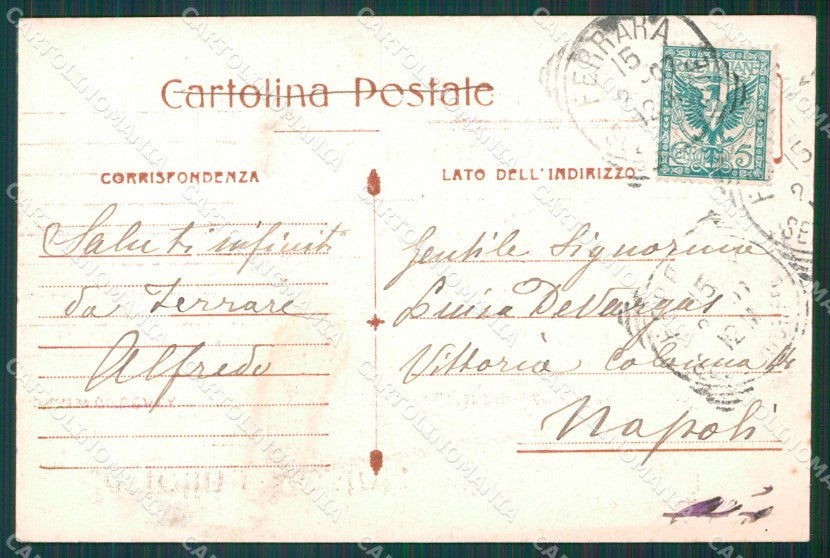 Cartolina Postale
CORRISPONDENZA
LATO DELL'INDIRIZZO
FERRARA
5
Saluti infiniti
da Ferrara
Alfredo
Gentile Signorina
Luisa De Vargas
Vittoria Colonna
Napoli
CARTOLINOMANIA